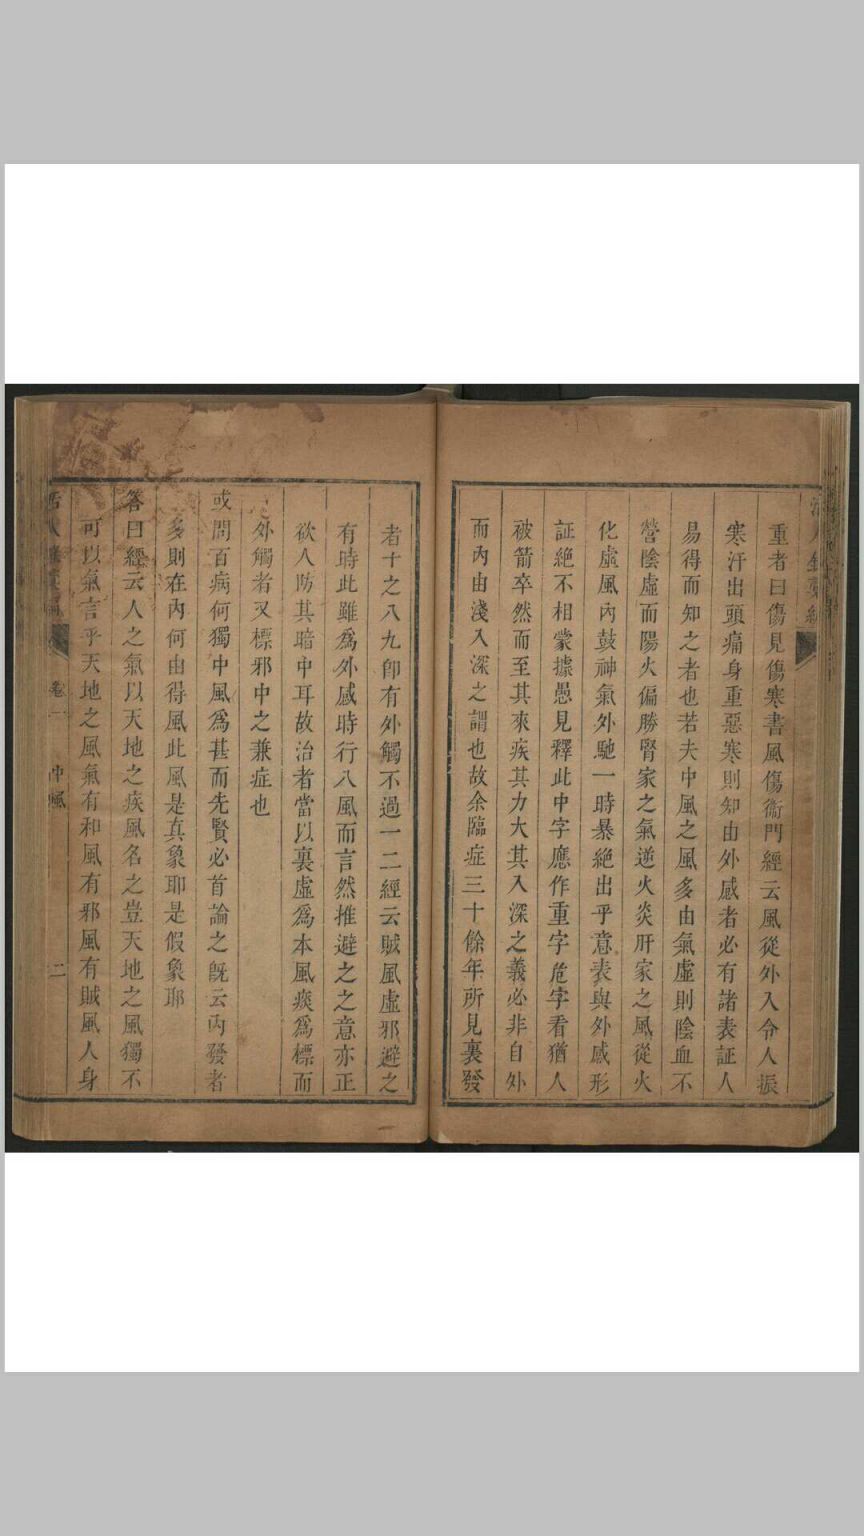 重者曰傷見傷寒書風傷衞門經云風從外入令人振
寒汗出頭痛身重惡寒則知由外感者必有諸表証人
易得而知之者也若夫中風之風多由氣虛則陰血不
營陰虛而陽火偏勝腎家之氣逆火炎肝家之風從火
化虛風內鼓神氣外馳一時暴絶出乎意表與外感形
証絶不相蒙據愚見釋此中字應作重字危字看猶人
被箭卒然而至其來疾其力大其入深之義必非自外
而內由淺入深之謂也故余臨症三十餘年所見裏發
者十之八九卽有外觸不過一二經云賊風虛邪避之
有時此雖爲外感時行八風而言然推避之之意亦正
欲人防其暗中耳故治者當以裏虛爲本風痰爲標而
外觸者又標邪中之兼症也
或問百病何獨中風爲甚而先賢必首論之旣云內發者
多則在內何由得風此風是真象耶是假象耶
答曰經云人之氣以天地之疾風名之豈天地之風獨不
可以氣言乎天地之風氣有和風有邪風有賊風人身
卷一
中風
二